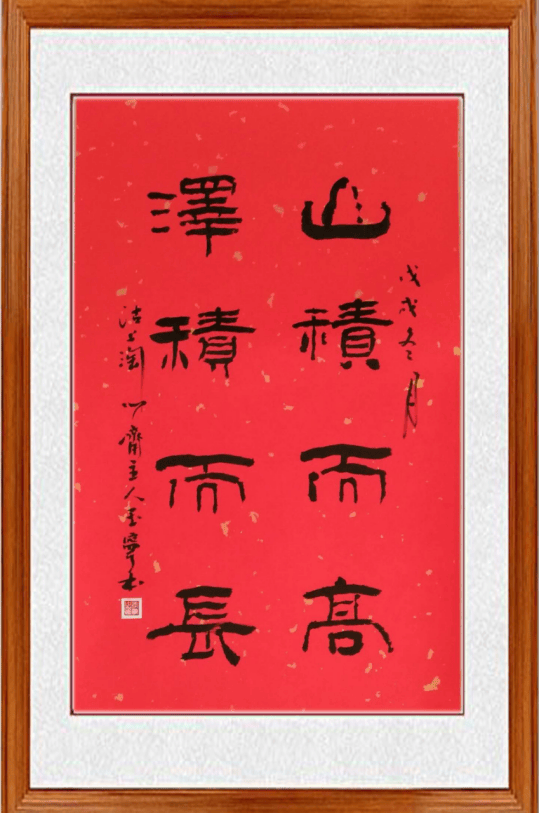 戊戌冬月
山積而高
澤積而長
齋主人玉寧書